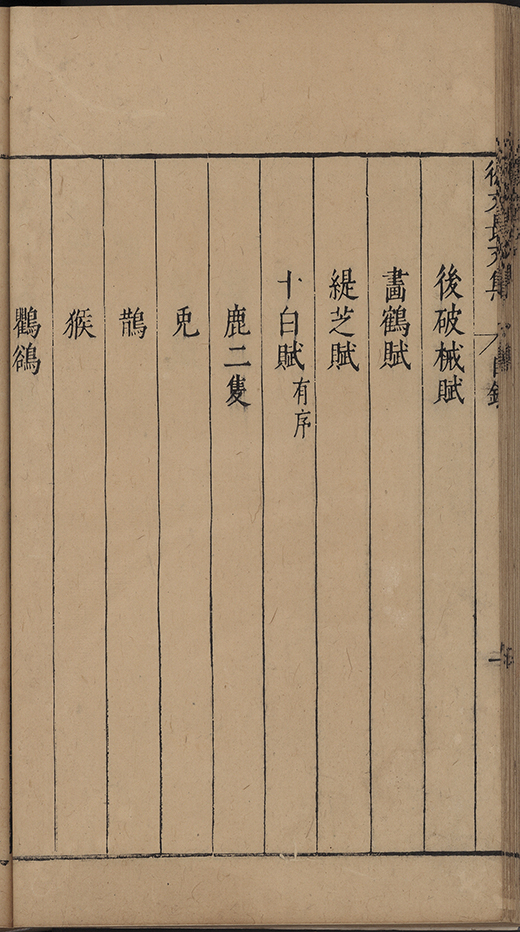 徐文長文集
目錄
一
後破械賦
畫鶴賦
緹芝賦
十白賦有序
鹿二隻
兎
鵲
猴
鸜鵒